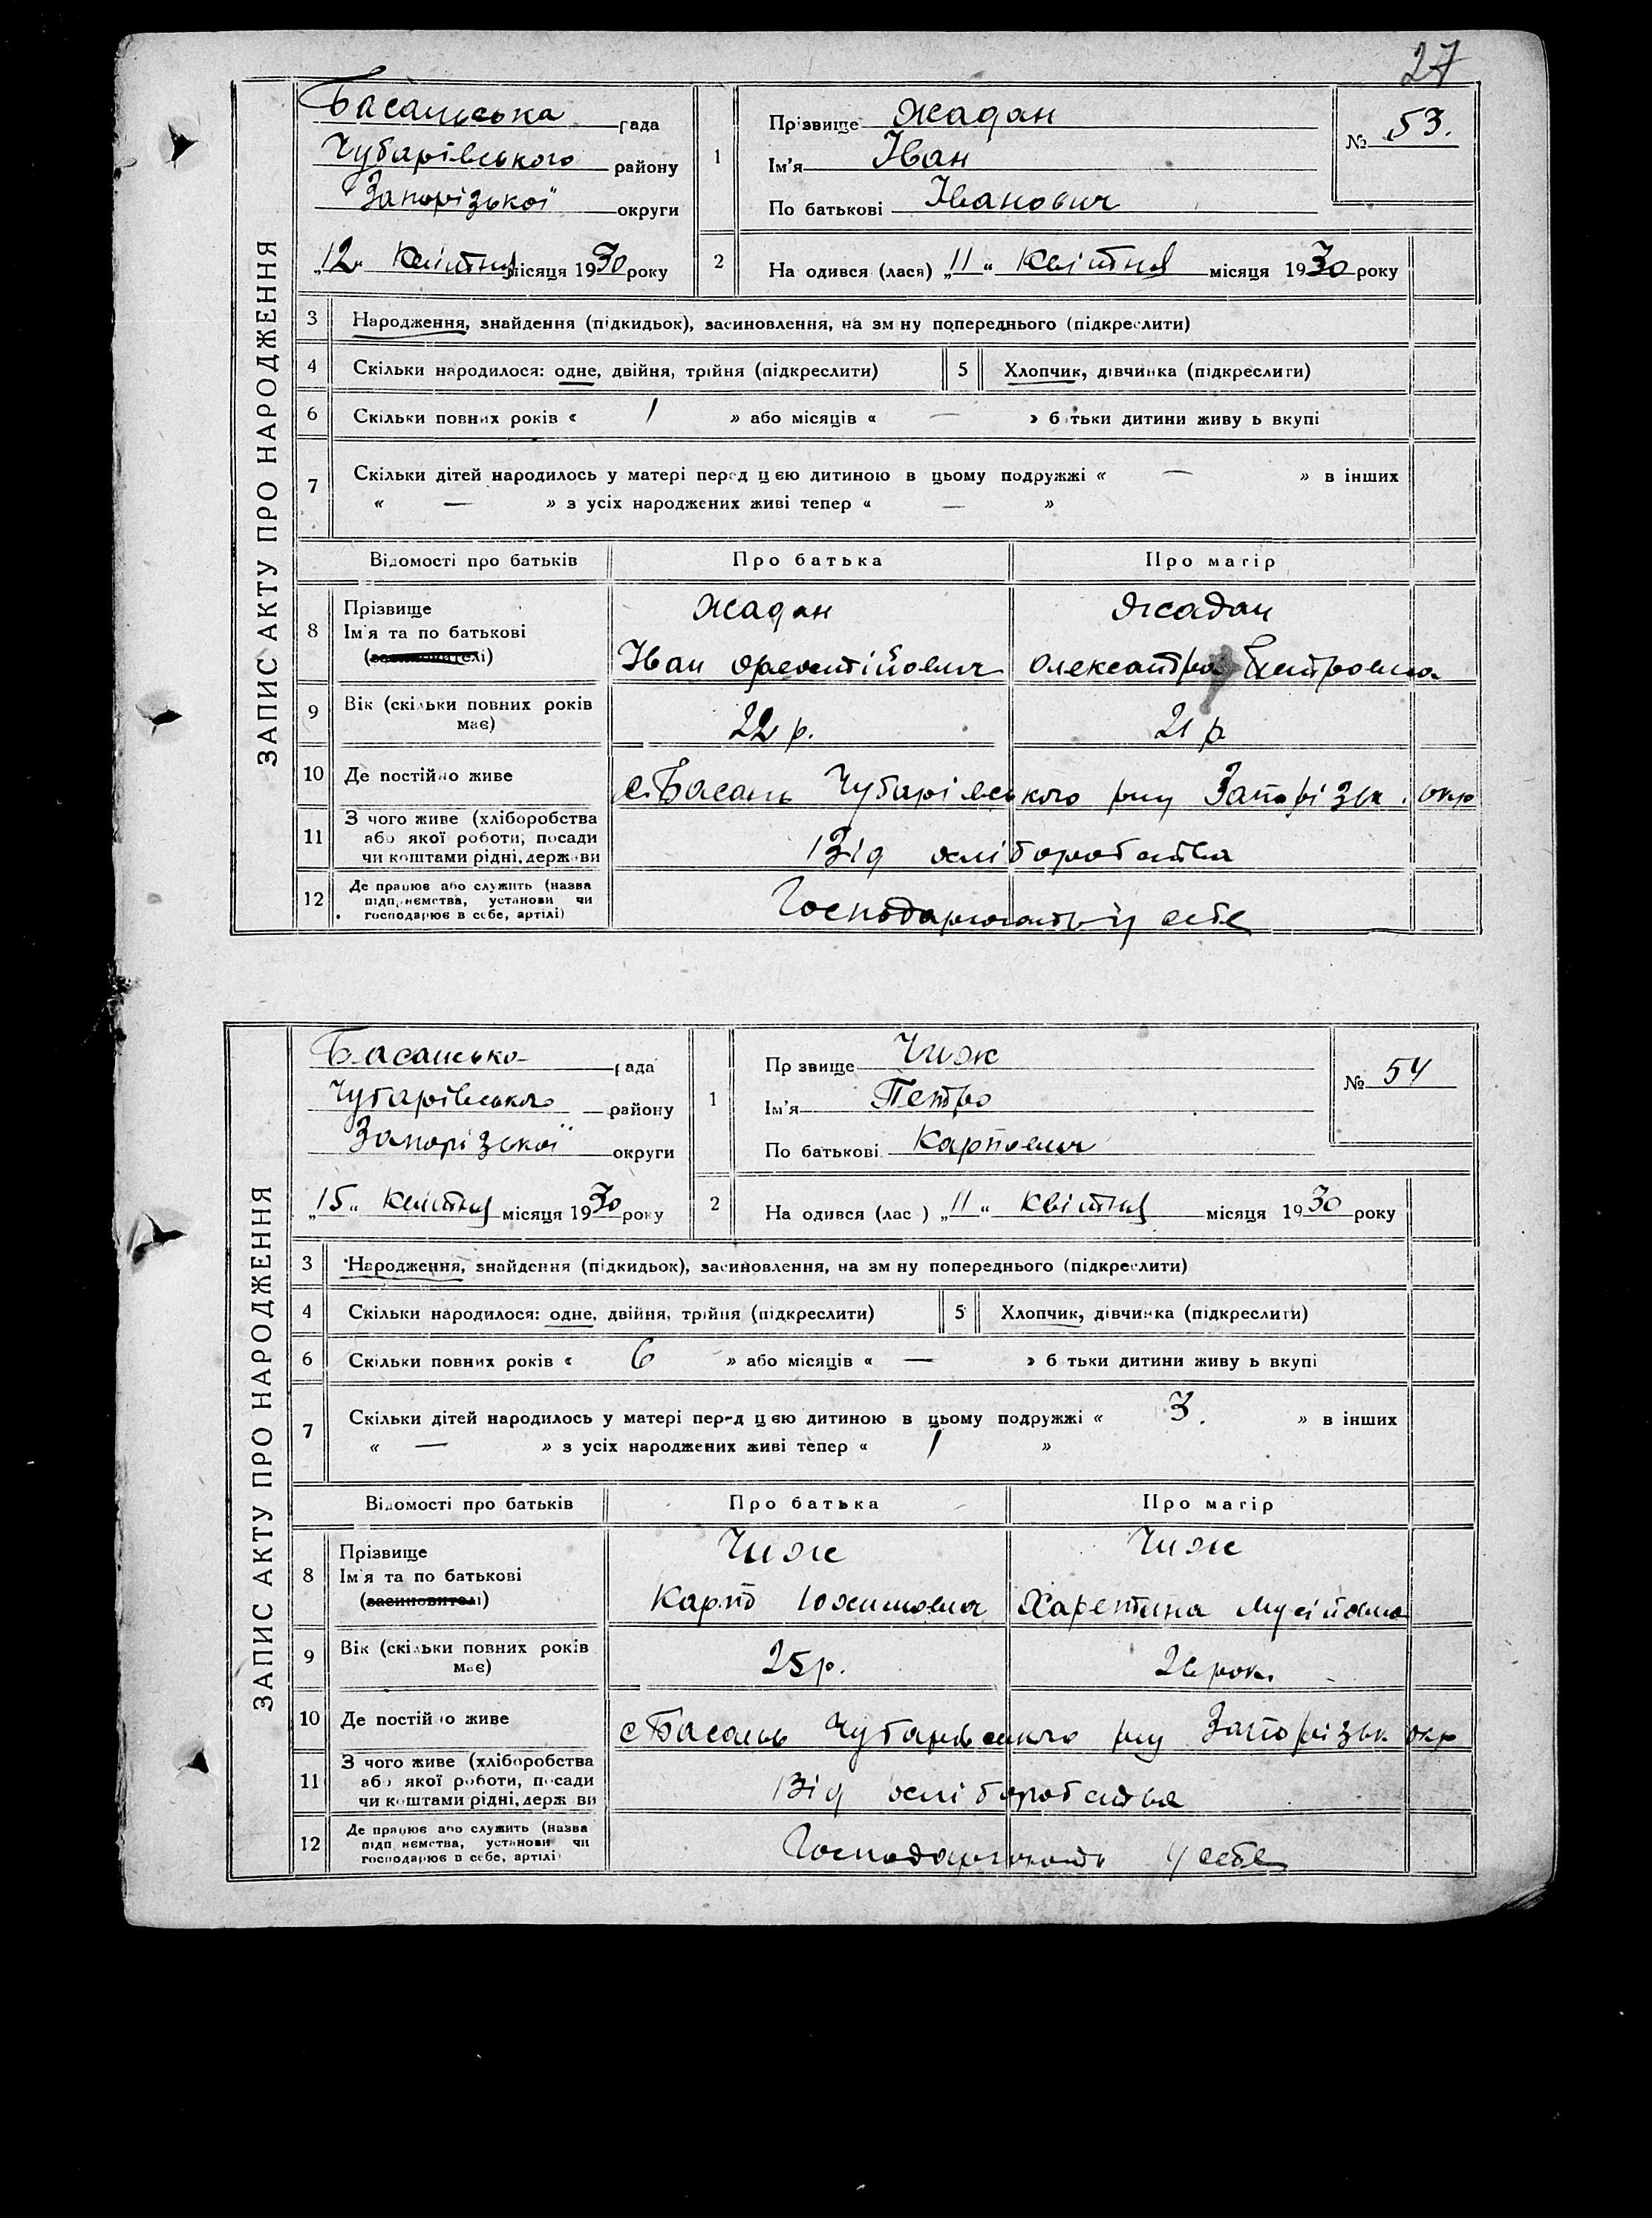 27
ЗАПИС АКТУ ПРО НАРОДЖЕННЯ
Басанська рада
Чубарівського району
Запорізької округи
„12“ Квітня місяця 1930 року
1 Прізвище Жадан
Ім'я Іван
По батькові Іванович
№ 53.
2 На одився (лася) „11“ Квітня місяця 1930 року
3 Народження, знайдення (підкидьок), засиновлення, на зм ну попереднього (підкреслити)
4 Скільки народилося: одне, двійня, трійня (підкреслити) 5 Хлопчик, дівчинка (підкреслити)
6 Скільки повних років « 1 » або місяців « — » б тьки дитини живу ь вкупі
7 Скільки дітей народилось у матері перед цєю дитиною в цьому подружжі « — » в інших
« — » з усіх народжених живі тепер « — »
Відомості про батьків Про батька Про матір
8 Прізвище Жадан Жадан
Ім'я та по батькові
(засиновителі) Іван Олександра Петровна
9 Вік (скільки повних років має) 22 р. 21 р
10 Де постійно живе с. Басань Чубарівського р-ну Запорізьк. окр
11 З чого живе (хліборобства
або якої роботи, посади
чи коштами рідні, держави Від хліборобства
12 Де працює або служить (назва
підприємства, установи чи
господарює в себе, артілі) Господарюють у себе
ЗАПИС АКТУ ПРО НАРОДЖЕННЯ
Басансько рада
Чубарівського району
Запорізької округи
„15“ Квітня місяця 1930 року
1 Пр звище Чиж
Ім'я Петро
По батькові Карпович
№ 54
2 На одився (лас ) „11“ Квітня місяця 1930 року
3 Народження, знайдення (підкидьок), засиновлення, на зм ну попереднього (підкреслити)
4 Скільки народилося: одне, двійня, трійня (підкреслити) 5 Хлопчик, дівчинка (підкреслити)
6 Скільки повних років « 6 » або місяців « — » б тьки дитини живу ь вкупі
7 Скільки дітей народилось у матері перед цєю дитиною в цьому подружжі « 3. » в інших
« — » з усіх народжених живі тепер « 1 »
Відомості про батьків Про батька Про матір
8 Прізвище Чиж Чиж
Ім'я та по батькові
(засиновителі) Карпо Юхимович Харетина Мусійовна
9 Вік (скільки повних років має) 25 р. 26 рок.
10 Де постій о живе с Басань Чубарівського р-ну Запорізьк окр
11 З чого живе (хліборобства
або якої роботи, посади
чи коштами рідні, держ ви Від хліборобства
12 Де працює або служить (назва
підп ємства, установи чи
господарює в себе, артілі Господарюють у себе